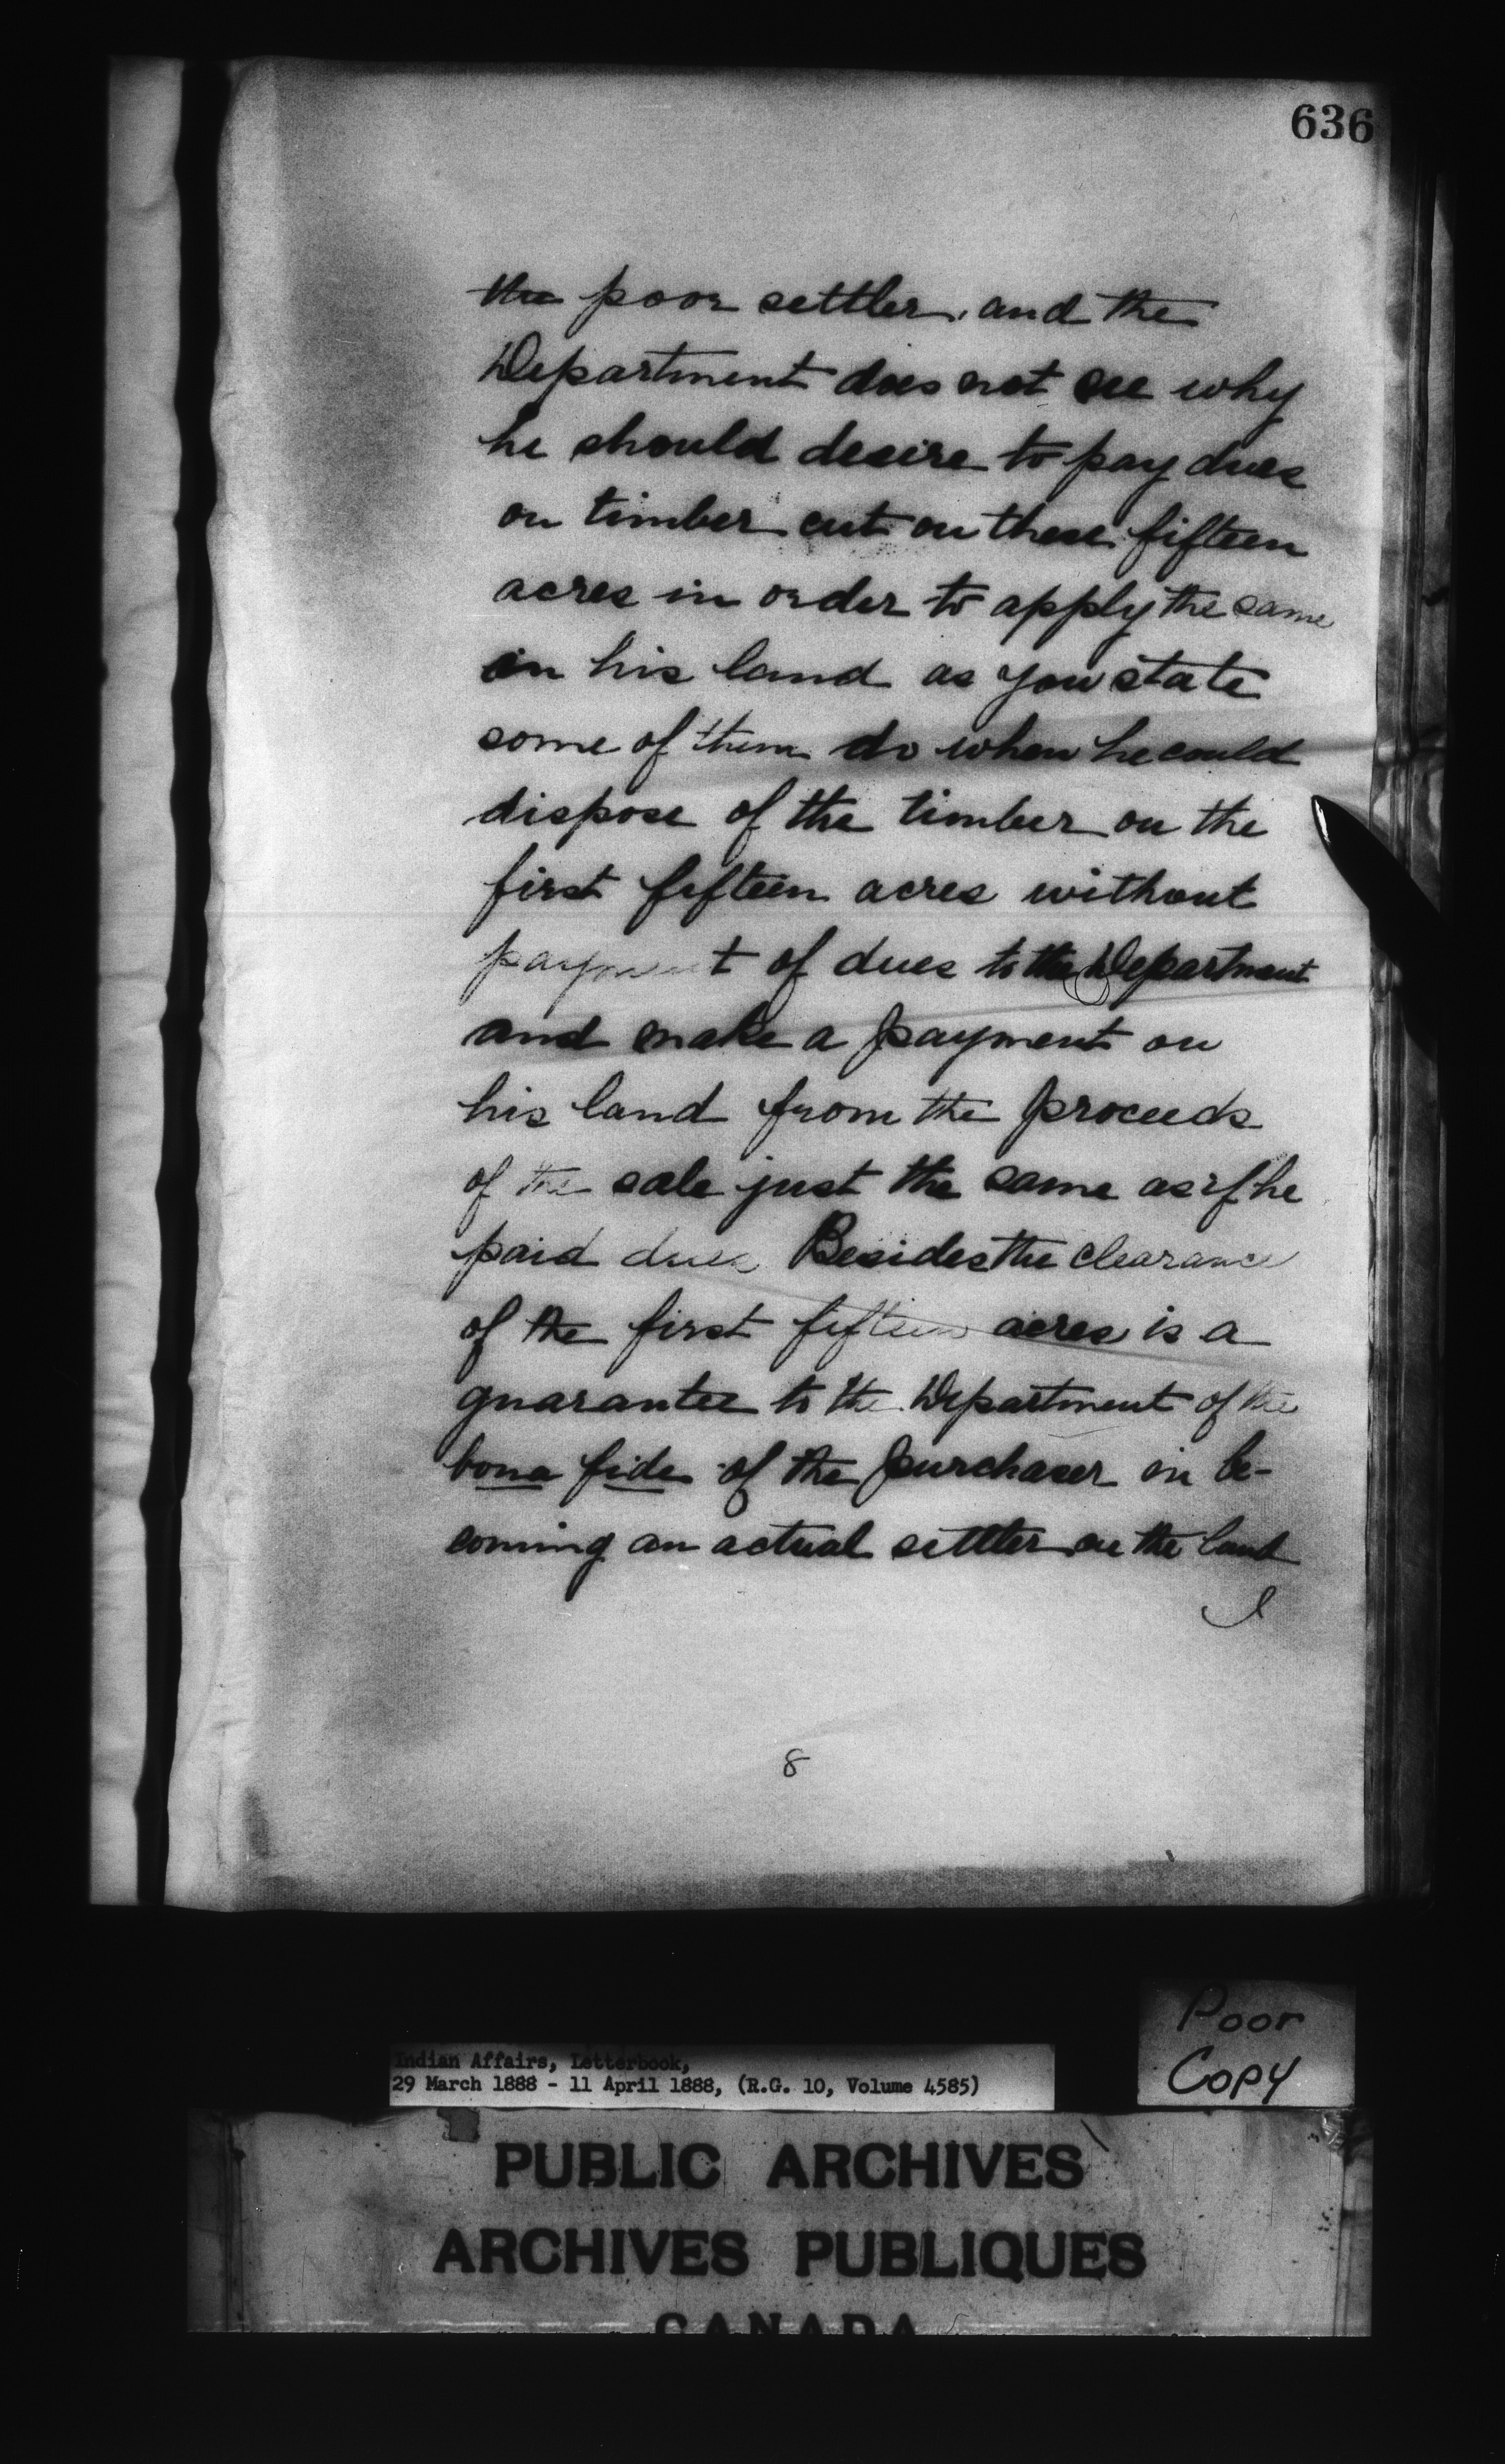 636
the poor settler, and the
Department does not see why
he should desire to pay dues
on timber cut on these fifteen
acres in order to apply the same
on his land as you state
some of them do when he could
dispose of the timber on the
first fifteen acres without
payment of dues to the Department
and make a payment on
his land from the proceeds
of the sale just the same as if he
paid dues Besides the clearance
of the first fifteen acres is a
guarantee to the Department of the
bona fide of the purchaser in be-
coming an actual settler on the land
I
8
Poor
Copy
Indian Affairs, Letterbook,
29 March 1888 - 11 April 1888, (R.G. 10, Volume 4585)
PUBLIC ARCHIVES
ARCHIVES PUBLIQUES
CANADA